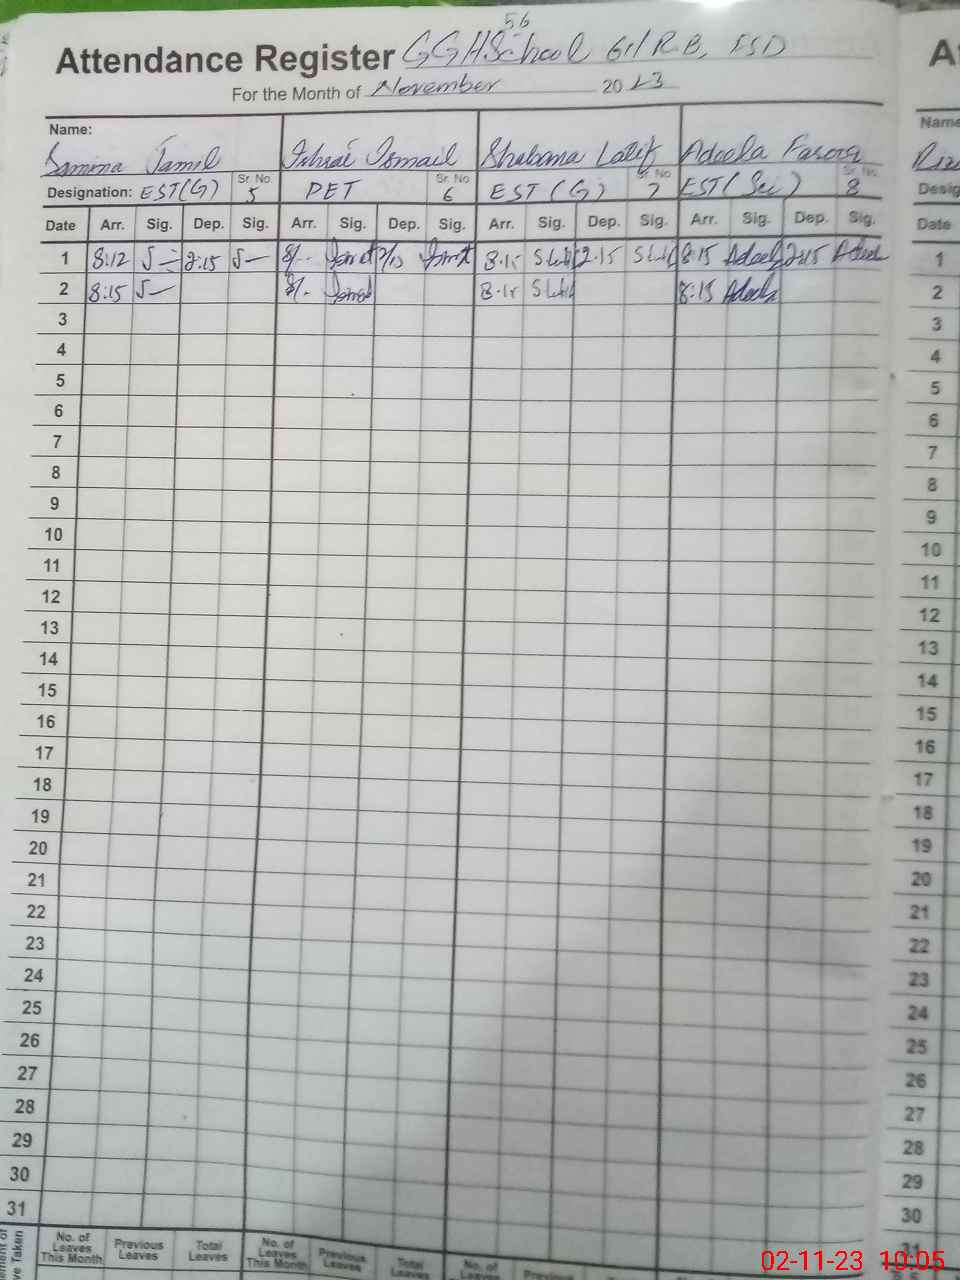 56
Attendance Register GGHSchool 61/R.B, FSD
For the Month of November 2023
Name:
Samina Jamil Ismail Shabana Latif Adeela
Designation: EST(G) Sr. No. 5 PET Sr. No. 6 EST (G) Sr. No. 7 EST(Sci) Sr. No. 8
Date Arr. Sig. Dep. Sig. Arr. Sig. Dep. Sig. Arr. Sig. Dep. Sig. Arr. Sig. Dep. Sig.
1 8:12 2:15 8/- 8.15 2.15 8:15 Adeela 2:15 Adeela
2 8:15 8/- 8.15 8:15 Adeela
3
4
5
6
7
8
9
10
11
12
13
14
15
16
17
18
19
20
21
22
23
24
25
26
27
28
29
30
31
No. of Leaves This Month Previous Leaves Total Leaves No. of Leaves This Month Previous Leaves Total Leaves No. of Previous
Name
Desig
Date
1
2
3
4
5
6
7
8
9
10
11
12
13
14
15
16
17
18
19
20
21
22
23
24
25
26
27
28
29
30
31
02-11-23 10:05